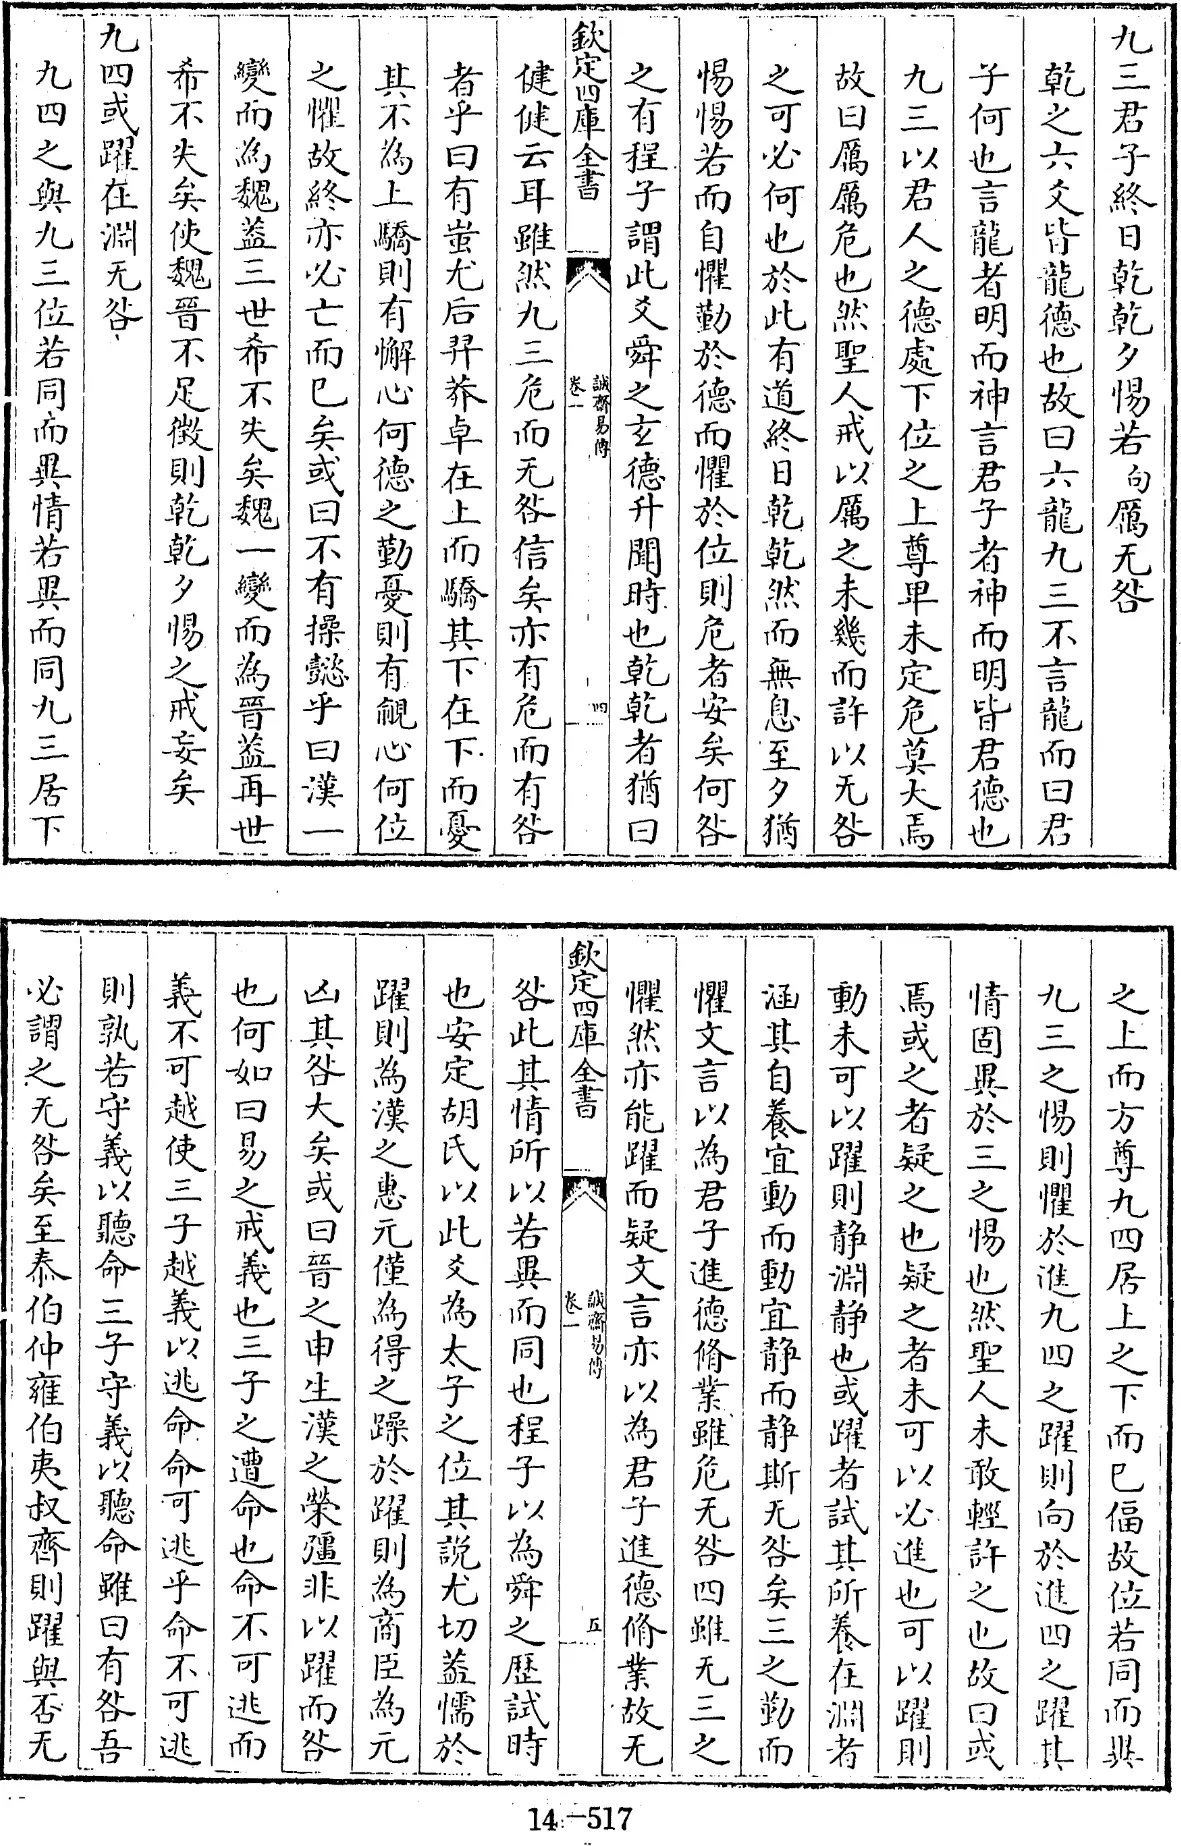 九三君子終日乾乾夕惕若句厲无咎
乾之六爻皆龍德也故曰六龍九三不言龍而曰君
子何也言龍者明而神言君子者神而明皆君德也
九三以君人之德處下位之上尊卑未定危莫大焉
故曰厲厲危也然聖人戒以厲之未幾而許以无咎
之可必何也於此有道終日乾乾然而無息至夕猶
惕惕若而自懼勤於德而懼於位則危者安矣何咎
之有程子謂此爻舜之玄德升聞時也乾乾者猶曰
欽定四庫全書
誠齋易傳
卷一
四
健健云耳雖然九三危而无咎信矣亦有危而有咎
者乎曰有蚩尤后羿莽卓在上而驕其下在下而憂
其不為上驕則有懈心何德之勤憂則有覦心何位
之懼故終亦必亡而已矣或曰不有操懿乎曰漢一
變而為魏葢三世希不失矣魏一變而為晉葢再世
希不失矣使魏晉不足徵則乾乾夕惕之戒妄矣
九四或躍在淵无咎
九四之與九三位若同而異情若異而同九三居下
之上而方尊九四居上之下而已偪故位若同而異
九三之惕則懼於進九四之躍則向於進四之躍其
情固異於三之惕也然聖人未敢輕許之也故曰或
焉或之者疑之也疑之者未可以必進也可以躍則
動未可以躍則静淵静也或躍者試其所養在淵者
涵其自養宜動而動宜静而静斯无咎矣三之勤而
懼文言以為君子進德脩業雖危无咎四雖无三之
懼然亦能躍而疑文言亦以為君子進德脩業故无
欽定四庫全書
誠齋易傳
卷一
五
咎此其情所以若異而同也程子以為舜之歷試時
也安定胡氏以此爻為太子之位其說尤切葢懦於
躍則為漢之惠元僅為得之躁於躍則為商臣為元
凶其咎大矣或曰晉之申生漢之榮彊非以躍而咎
也何如曰易之戒義也三子之遭命也命不可逃而
義不可越使三子越義以逃命命可逃乎命不可逃
則孰若守義以聽命三子守義以聽命雖曰有咎吾
必謂之无咎矣至泰伯仲雍伯夷叔齊則躍與否无
14-517